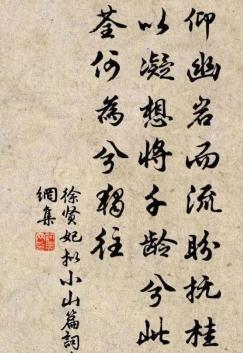 仰幽岩而流盼抚桂
以凝想将千龄兮此
荃何為兮獨往
徐贤妃拟小山篇詞
網集